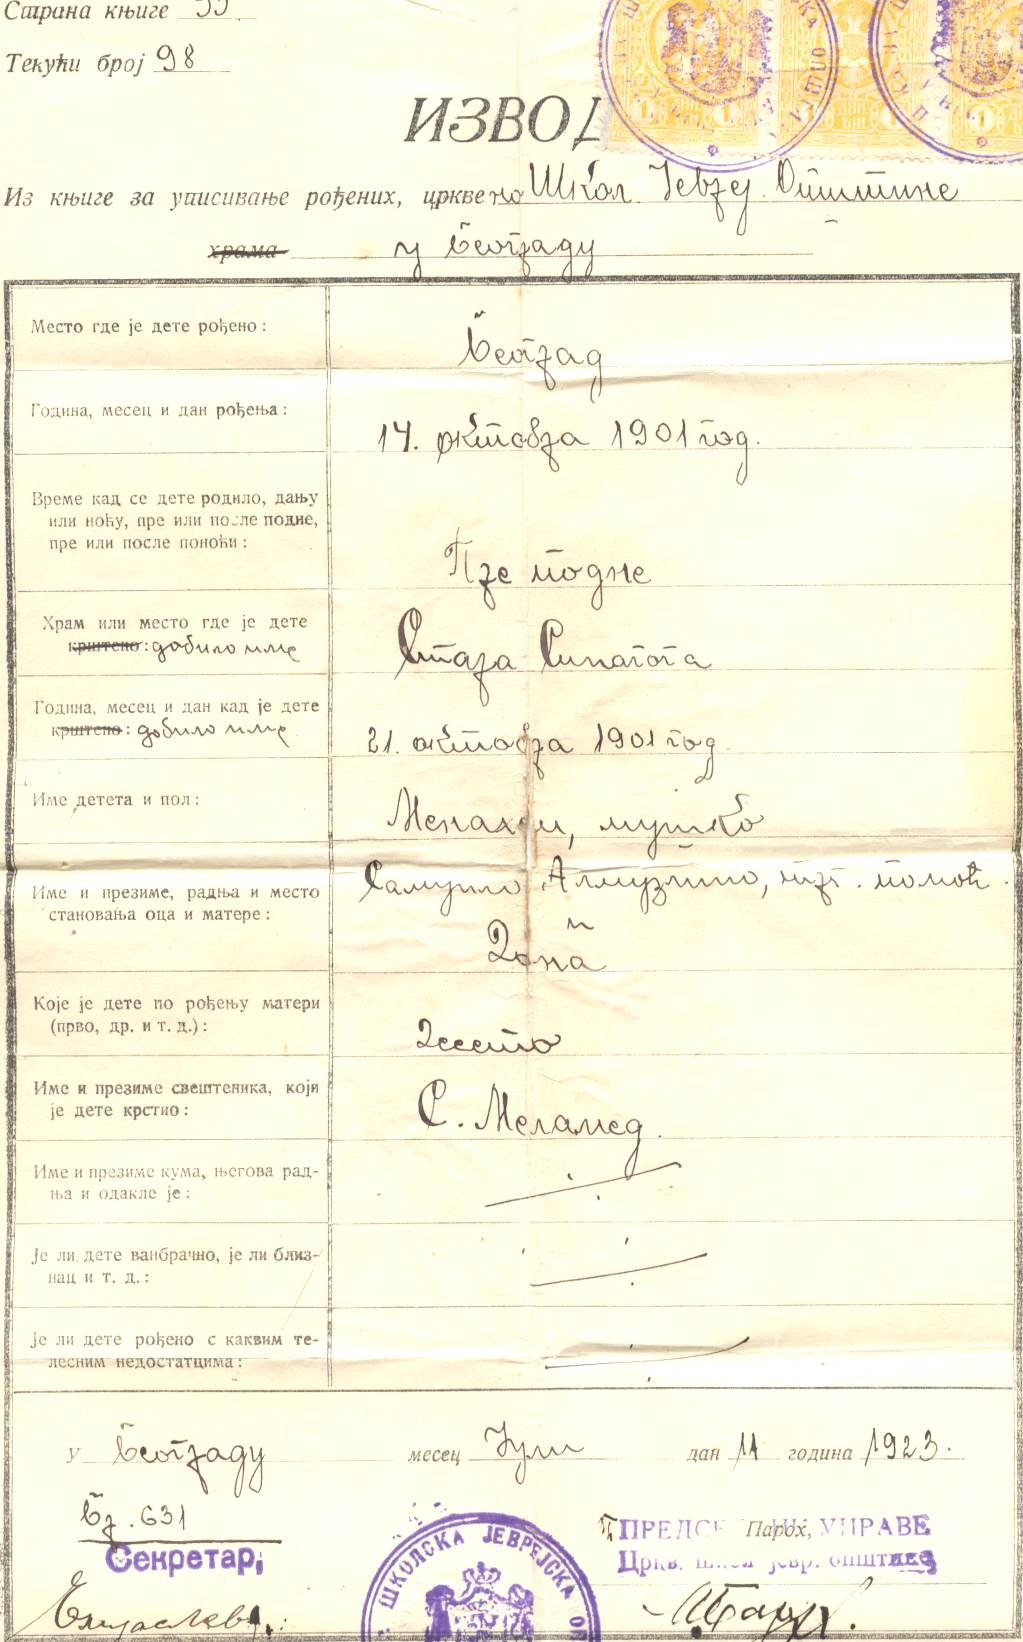 Страна књиге 55
Текући број 98
ИЗВОД
Из књиге за уписивање рођених, црквено Школ. Јевреј. Општине
храма у Београду
Место где је дете рођено:
Београд
Година, месец и дан рођења:
14. октобра 1901 год.
Време кад се дете родило, дању
или ноћу, пре или после подне,
пре или после поноћи:
Пре подне
Храм или место где је дете
крштено: добило име
Стара Синагога
Година, месец и дан кад је дете
крштено: добило име
21. октобра 1901 год.
Име детета и пол:
Менахем, мушко
Име и презиме, радња и место
становања оца и матере:
Самуило Алмузлино, помоћ.
и
Дона
Које је дете по рођењу матери
(прво, др. и т. д.):
Шесто
Име и презиме свештеника, који
је дете крстио:
С. Меламед.
Име и презиме кума, његова рад-
ња и одакле је:
Је ли дете ванбрачно, је ли близ-
нац и т. д.:
Је ли дете рођено с каквим те-
лесним недостатцима:
У Београду месец Јули дан 11 година 1923.
Бр. 631
Секретар,
Парох,
УПРАВЕ
Цркв. школ јевр. општине
ШКОЛСКА ЈЕВРЕЈСКА